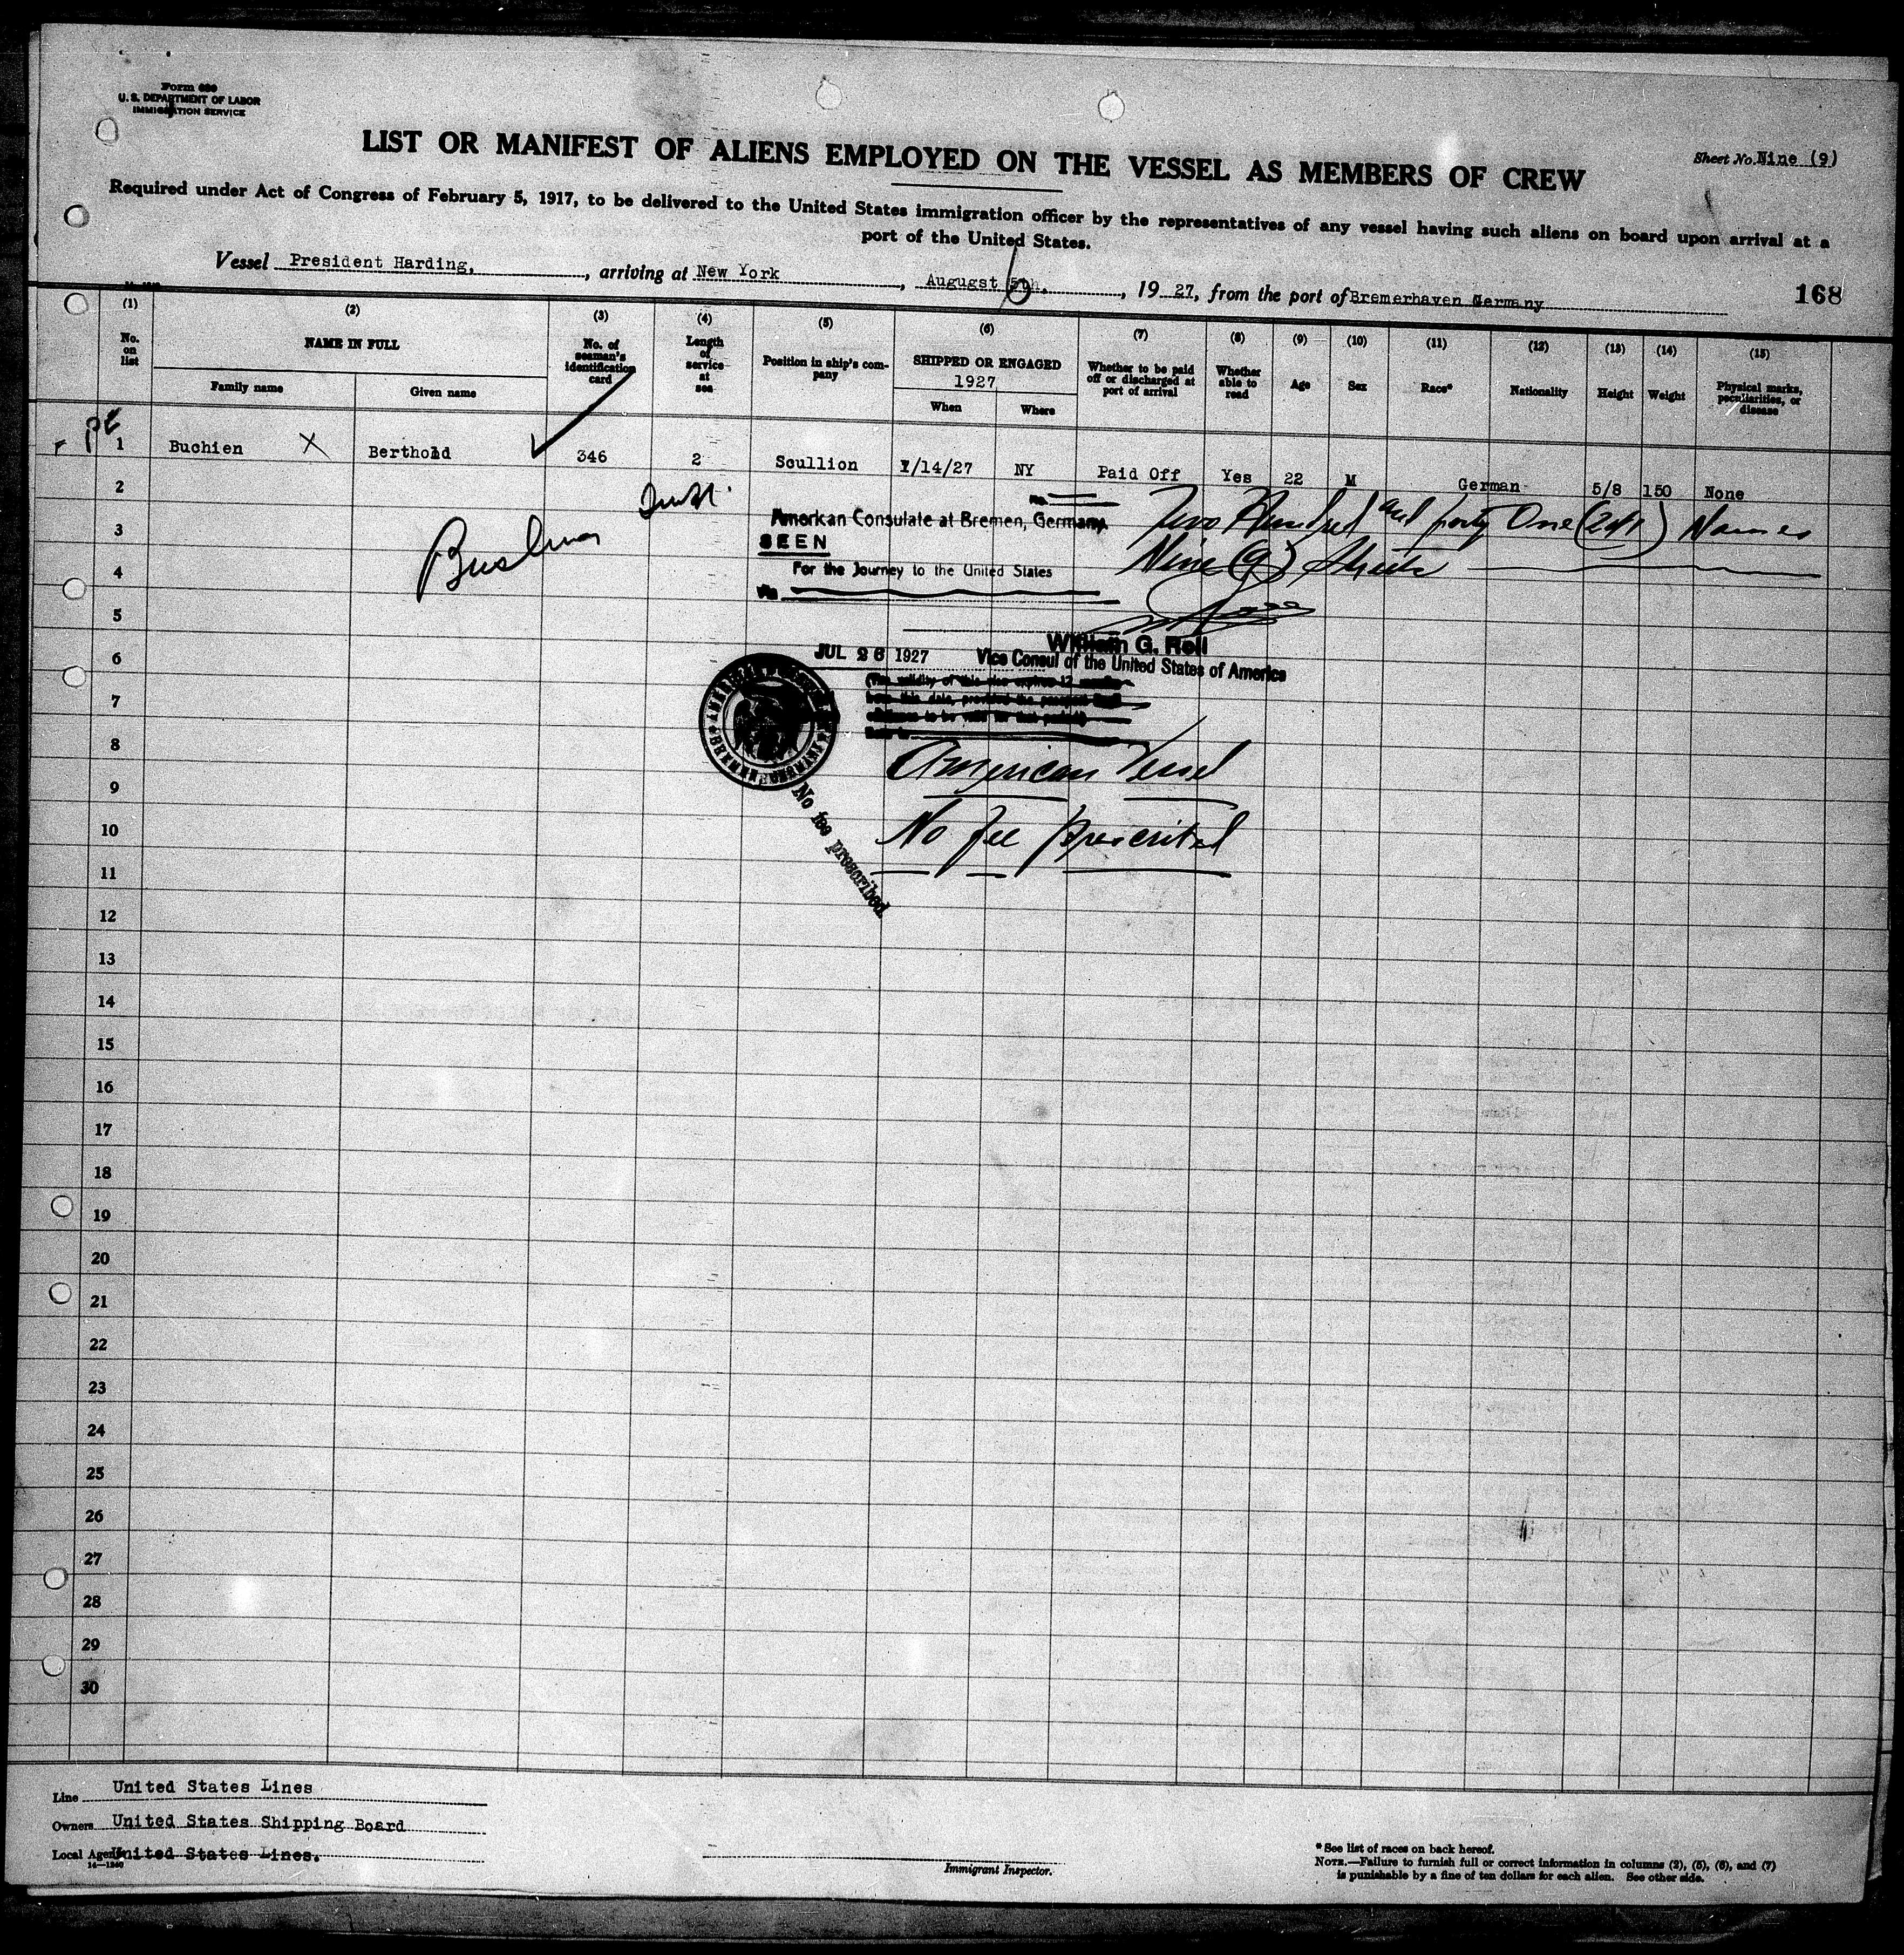 Form 680
U. S. DEPARTMENT OF LABOR
IMMIGRATION SERVICE
LIST OR MANIFEST OF ALIENS EMPLOYED ON THE VESSEL AS MEMBERS OF CREW
Sheet No. Nine (9)
Required under Act of Congress of February 5, 1917, to be delivered to the United States immigration officer by the representatives of any vessel having such aliens on board upon arrival at a
port of the United States.
Vessel President Harding, , arriving at New York , Augugst 5th, , 19 27, from the port of Bremerhaven Germany
168
(1) (2) (3) (4) (5) (6) (7) (8) (9) (10) (11) (12) (13) (14) (15)
No. on list NAME IN FULL No. of seaman's identification card Length of service at sea Position in ship's company SHIPPED OR ENGAGED 1927 Whether to be paid off or discharged at port of arrival Whether able to read Age Sex Race* Nationality Height Weight Physical marks, peculiarities, or disease
Family name Given name When Where
1 Buchien X Berthold 346 2 Scullion 7/14/27 NY Paid Off Yes 22 M German 5/8 150 None
2
No.
3 American Consulate at Bremen, Germany. Two Hundred and forty One (241) Names
SEEN Nine (9) Sheets
4 For the Journey to the United States
Via
5
William G. Roll
6 JUL 26 1927 Vice Consul of the United States of America
(The validity of this visa expires 12 months
7 from this date, provided the passport
continues to be valid for that period)
8
American Vessel
9
No fee prescribed
10 No fee prescribed
11
12
13
14
15
16
17
18
19
20
21
22
23
24
25
26
27
28
29
30
Line United States Lines
Owners United States Shipping Board
Local Agents United States Lines.
14—1240
Immigrant Inspector.
* See list of races on back hereof.
NOTE.—Failure to furnish full or correct information in columns (2), (5), (6), and (7)
is punishable by a fine of ten dollars for each alien. See other side.